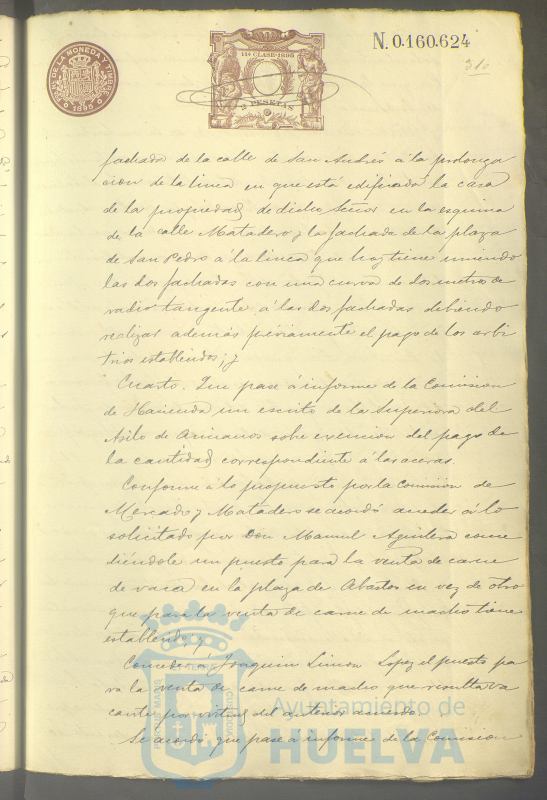 N.0.160.624
11ª CLASE-1895
FCA. DE LA MONEDA Y TIMBRE
1895
2 PESETAS
316
fachada de la calle de San Andrés á la prolonga
cion de la linea en que está edificada la casa
de la propiedad de dicho Señor en la esquina
de la calle Matadero y la fachada de la plaza
de San Pedro á la linea que hoy tiene uniendo
las dos fachadas con una curva de dos metros de
radio tangente á las dos fachadas debiendo
realizar además préviamente el pago de los arbi
trios establecidos; y
Cuarto. Que pase á informe de la Comision
de Hacienda un escrito de la Superiora del
Asilo de Ancianos sobre exención del pago de
la cantidad correspondiente á las aceras.
Conforme á lo propuesto por la Comisión de
Mercado y Matadero se acordó acceder á lo
solicitado por Don Manuel Aguilera conce
diéndole un puesto para la venta de carne
de vaca en la plaza de Abastos en vez de otro
que para la venta de carne de macho tiene
establecido; y
Conceder á Joaquin Limon Lopez el puesto pa
ra la venta de carne de macho que resulta va
cante por virtud del anterior acuerdo.
Se acordó que pase a informe de la Comision
Ayuntamiento de
HUELVA